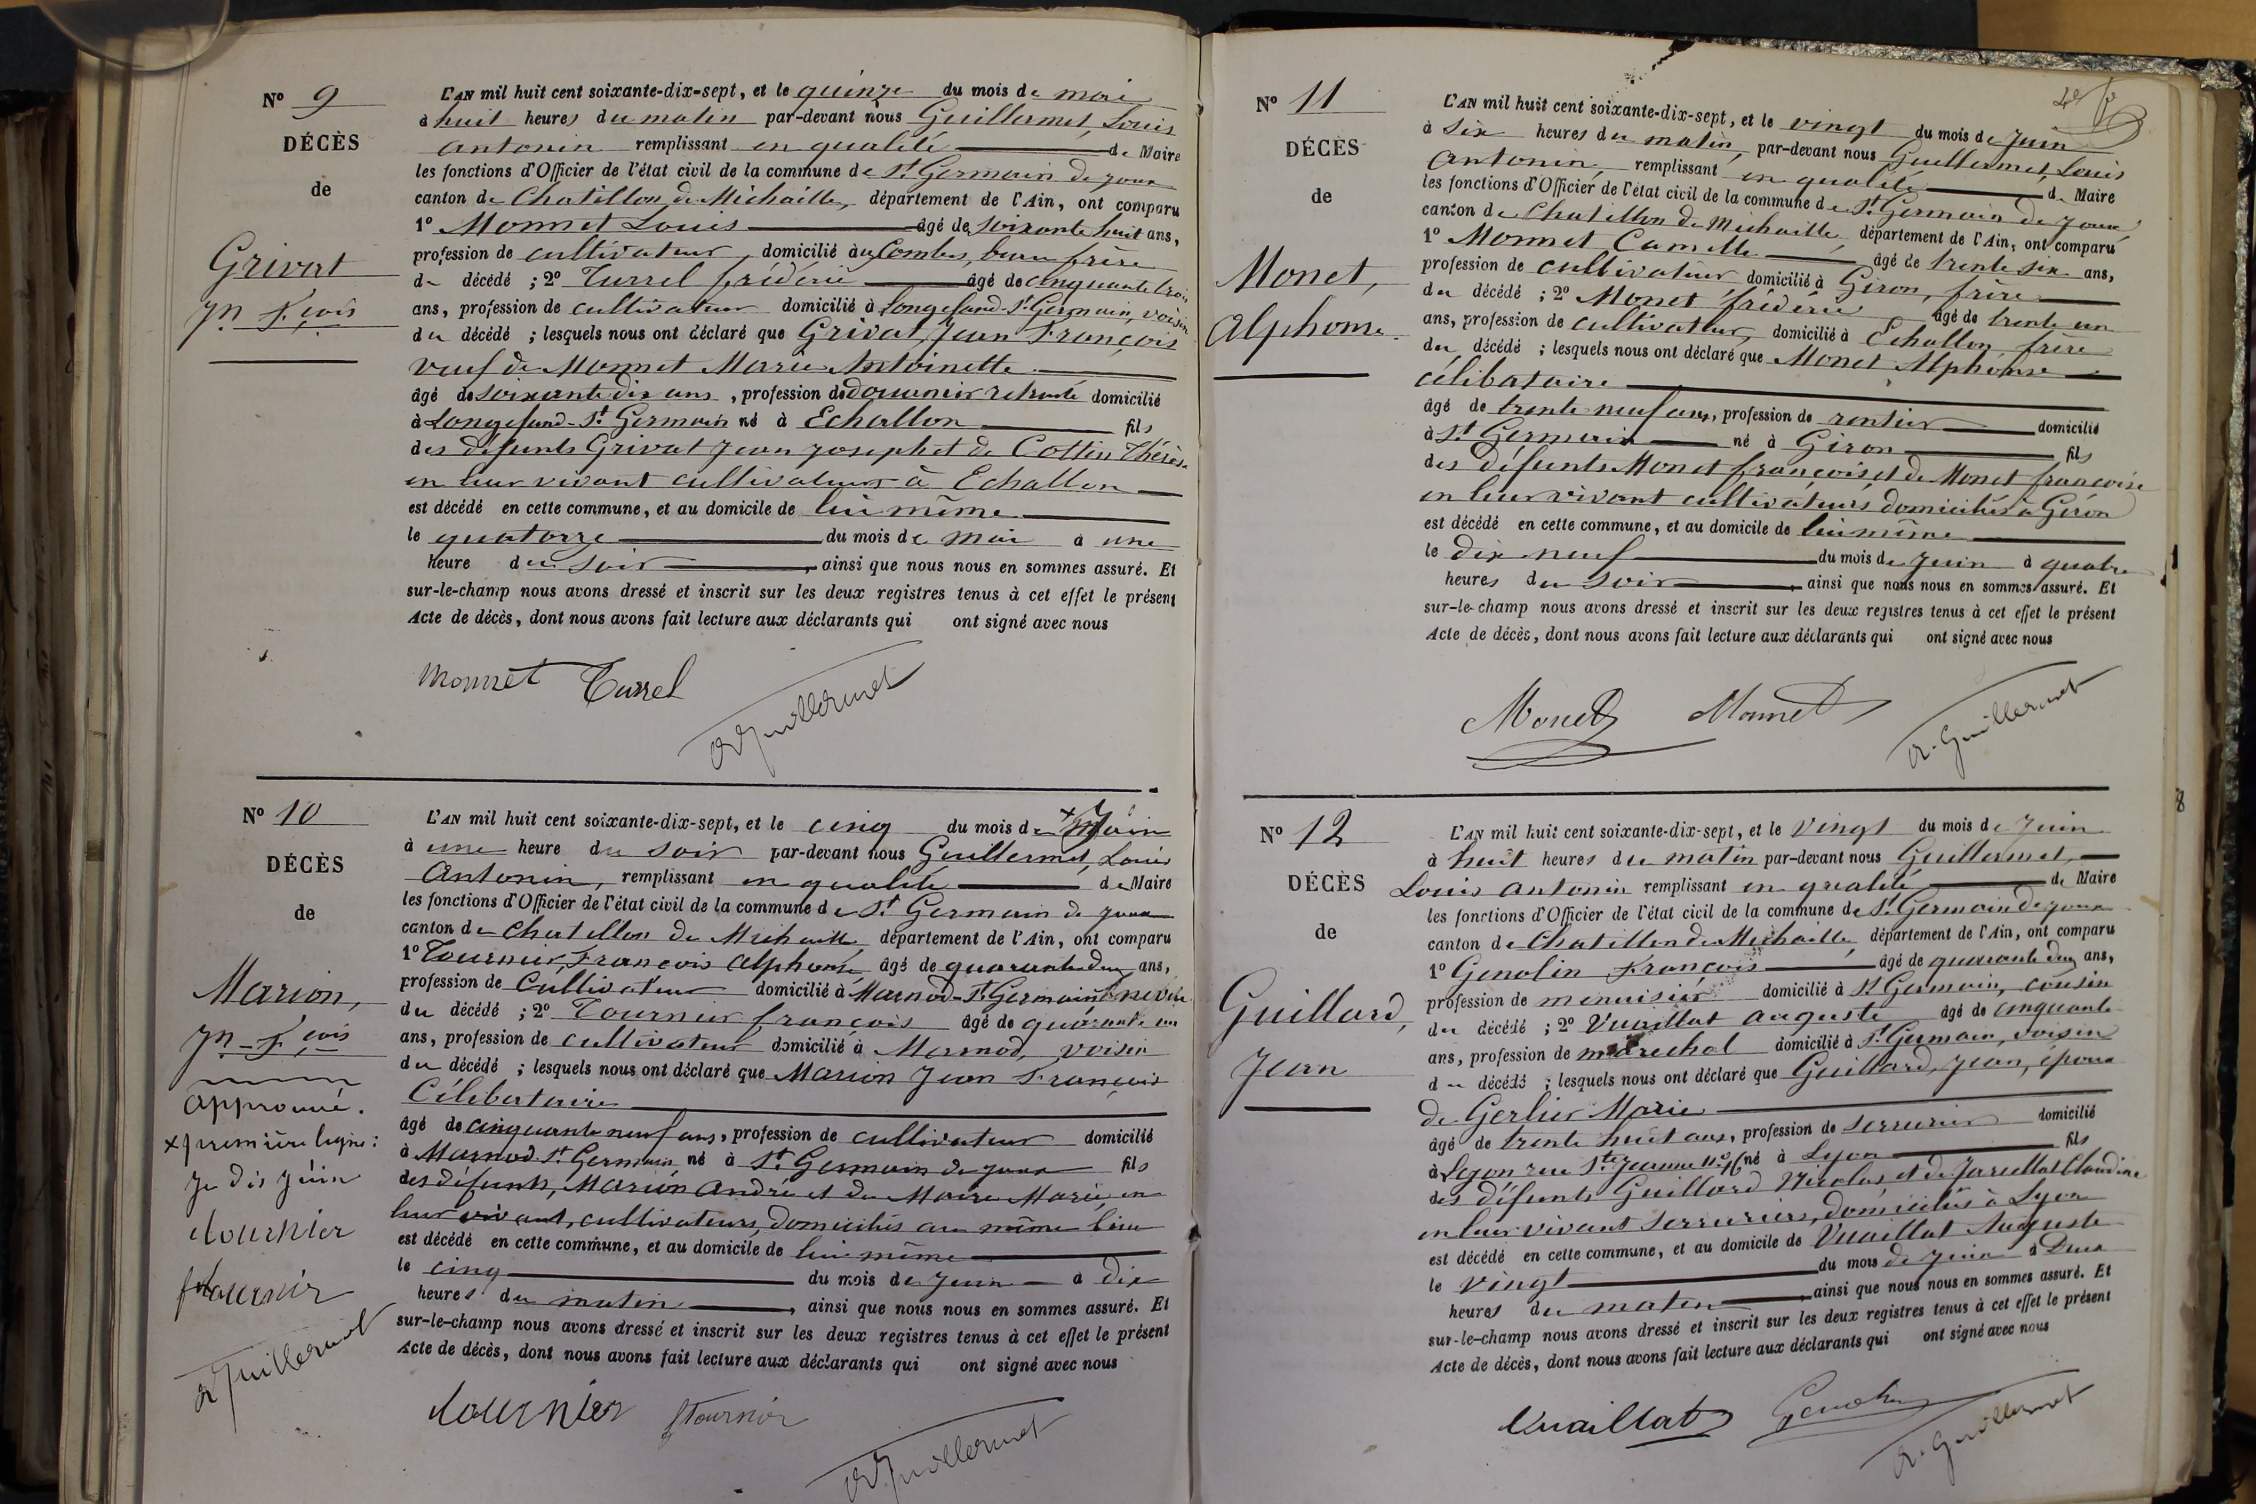 Nº 9
DÉCÈS
de
Grivat
Jn fçois
L'AN mil huit cent soixante-dix-sept, et le quinze du mois de mai
à huit heures du matin par-devant nous Guillermet, Louis
Antonin remplissant en qualité de Maire
les fonctions d'Officier de l'état civil de la commune de St Germain de Joux
canton de Chatillon de Michaille, département de l'Ain, ont comparu
1º Monnet Louis âgé de soixante huit ans,
profession de cultivateur domicilié au Combes, beau frère
du décédé ; 2º Turrel frédéric âgé de cinquante trois
ans, profession de cultivateur domicilié à Longefand-St Germain, voisin
du décédé ; lesquels nous ont déclaré que Grivat, Jean François
veuf de Monnet Marie Antoinette
âgé de soixante dix ans, profession de douanier retraité domicilié
à Longefand-St Germain né à Echallon fils
des défunts Grivat Jean Joseph et de Cottin Thérèse
en leur vivant cultivateurs à Echallon
est décédé en cette commune, et au domicile de lui même
le quatorze du mois de mai à une
heure du soir, ainsi que nous nous en sommes assuré. Et
sur-le-champ nous avons dressé et inscrit sur les deux registres tenus à cet effet le présent
Acte de décès, dont nous avons fait lecture aux déclarants qui ont signé avec nous
Monnet Turrel
A Guillermet
Nº 10
DÉCÈS
de
Marion,
Jn-fçois
approuvé.
x première ligne:
Je dis juin
tournier
f tournier
A Guillermet
L'AN mil huit cent soixante-dix-sept, et le cinq du mois de x Juin
à une heure du soir par-devant nous Guillermet, Louis
Antonin, remplissant en qualité de Maire
les fonctions d'Officier de l'état civil de la commune de St Germain de Joux
canton de Chatillon de Michaille, département de l'Ain, ont comparu
1º Tournier, François Alphonse âgé de quarante deux ans,
profession de cultivateur domicilié à Marnod-St Germain, neveu
du décédé ; 2º Tournier françois âgé de quarante un
ans, profession de cultivateur domicilié à Marnod, voisin
du décédé ; lesquels nous ont déclaré que Marion Jean François
Célibataire
âgé de cinquante neuf ans, profession de cultivateur domicilié
à Marnod St Germain, né à St Germain de Joux fils
des défunts, Marion André et de Maire Marie, en
leur vivant, cultivateurs, domiciliés au même lieu
est décédé en cette commune, et au domicile de lui même
le cinq du mois de Juin à dix
heures du matin, ainsi que nous nous en sommes assuré. Et
sur-le-champ nous avons dressé et inscrit sur les deux registres tenus à cet effet le présent
Acte de décès, dont nous avons fait lecture aux déclarants qui ont signé avec nous
tournier f Tournier
A Guillermet
Nº 11
DÉCÈS
de
Monet,
Alphonse.
L'AN mil huit cent soixante-dix-sept, et le vingt du mois de Juin
à six heures du matin, par-devant nous Guillermet, Louis
Antonin, remplissant en qualité de Maire
les fonctions d'Officier de l'état civil de la commune de St Germain de Joux
canton de Chatillon de Michaille, département de l'Ain, ont comparu
1º Monnet Camille âgé de trente six ans,
profession de cultivateur domicilié à Giron, frère
du décédé ; 2º Monet frédéric âgé de trente un
ans, profession de cultivateur, domicilié à Echallon frère
du décédé ; lesquels nous ont déclaré que Monet Alphonse
célibataire
âgé de trente neuf ans, profession de rentier domicilié
à St Germain né à Giron fils
des défunts Monet françois et de Monet françoise
en leur vivant cultivateurs domiciliés à Giron
est décédé en cette commune, et au domicile de lui même
le dix neuf du mois de Juin à quatre
heures du soir, ainsi que nous nous en sommes assuré. Et
sur-le-champ nous avons dressé et inscrit sur les deux registres tenus à cet effet le présent
Acte de décès, dont nous avons fait lecture aux déclarants qui ont signé avec nous
Monet Monnet
A. Guillermet
Nº 12
DÉCÈS
de
Guillard,
Jean
L'AN mil huit cent soixante-dix-sept, et le vingt du mois de Juin
à huit heures du matin par-devant nous Guillermet,
Louis Antonin remplissant en qualité de Maire
les fonctions d'Officier de l'état civil de la commune de St Germain de Joux
canton de Chatillon de Michaille, département de l'Ain, ont comparu
1º Genolin François âgé de quarante deux ans,
profession de menuisier domicilié à St Germain, cousin
du décédé ; 2º Vuaillat Auguste âgé de cinquante
ans, profession de maréchal domicilié à St Germain, voisin
du décédé ; lesquels nous ont déclaré que Guillard, Jean, époux
de Gerlier Marie
âgé de trente huit ans, profession de serrurier domicilié
à Lyon rue Ste Jeanne nº 16 né à Lyon fils
des défunts Guillard Nicolas et de Claudine
en leur vivant serruriers, domiciliés à Lyon
est décédé en cette commune, et au domicile de Vuaillat Auguste
le vingt du mois de Juin à Deux
heures du matin, ainsi que nous nous en sommes assuré. Et
sur-le-champ nous avons dressé et inscrit sur les deux registres tenus à cet effet le présent
Acte de décès, dont nous avons fait lecture aux déclarants qui ont signé avec nous
Vuaillat Genolin
A. Guillermet